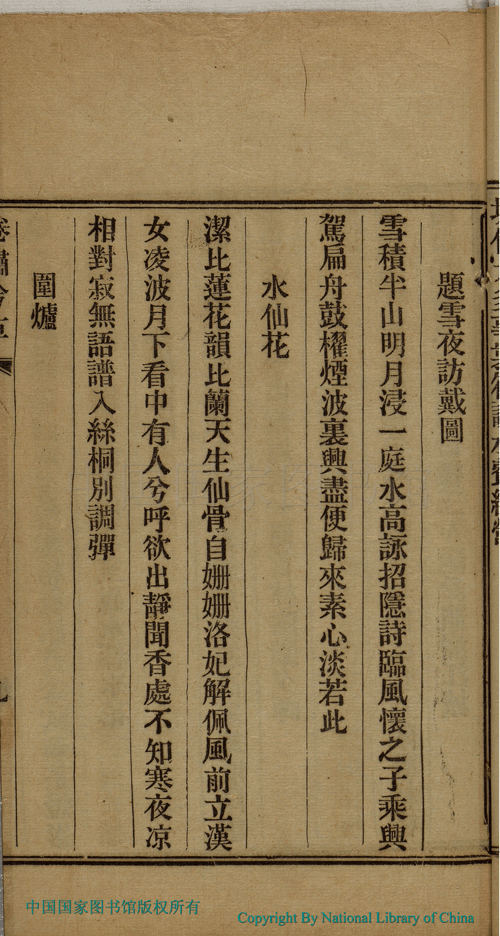 題雪夜訪戴圖
雪積半山明月浸一庭水高詠招隱詩臨風懷之子乘興
駕扁舟鼓櫂煙波裏興盡便歸來素心淡若此
水仙花
潔比蓮花韻比蘭天生仙骨自姍姍洛妃解佩風前立漢
女凌波月下看中有人兮呼欲出靜聞香處不知寒夜凉
相對寂無語譜入絲桐別調彈
圍爐
中国国家图书馆版权所有
Copyright By National Library of China